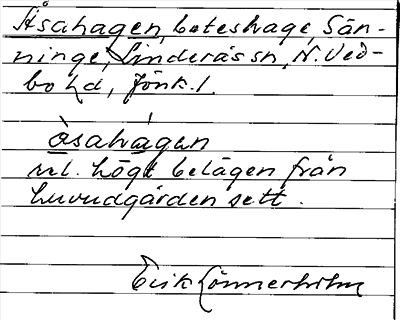 Åsahagen, beteshage, Sän-
ninge, Linderås sn, N. Ved-
bo hd, Jönk. l.
òsahágen
rel. högt belägen från
huvudgården sett.
Erik Lönnerholm